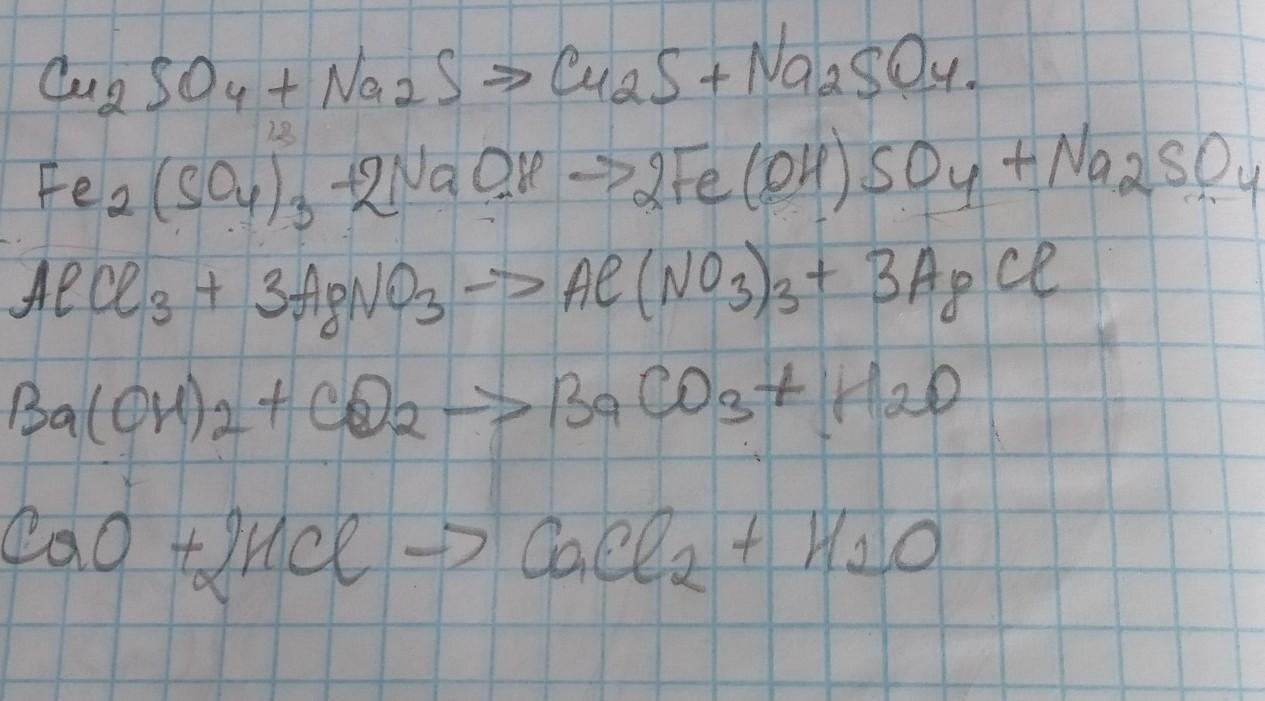 Cu2SO4 + Na2S → Cu2S + Na2SO4.
Fe2(SO4)3 + 2NaOH → 2Fe(OH)SO4 + Na2SO4
AlCl3 + 3AgNO3 → Al(NO3)3 + 3AgCl
Ba(OH)2 + CO2 → BaCO3 + H2O
CaO + 2HCl → CaCl2 + H2O